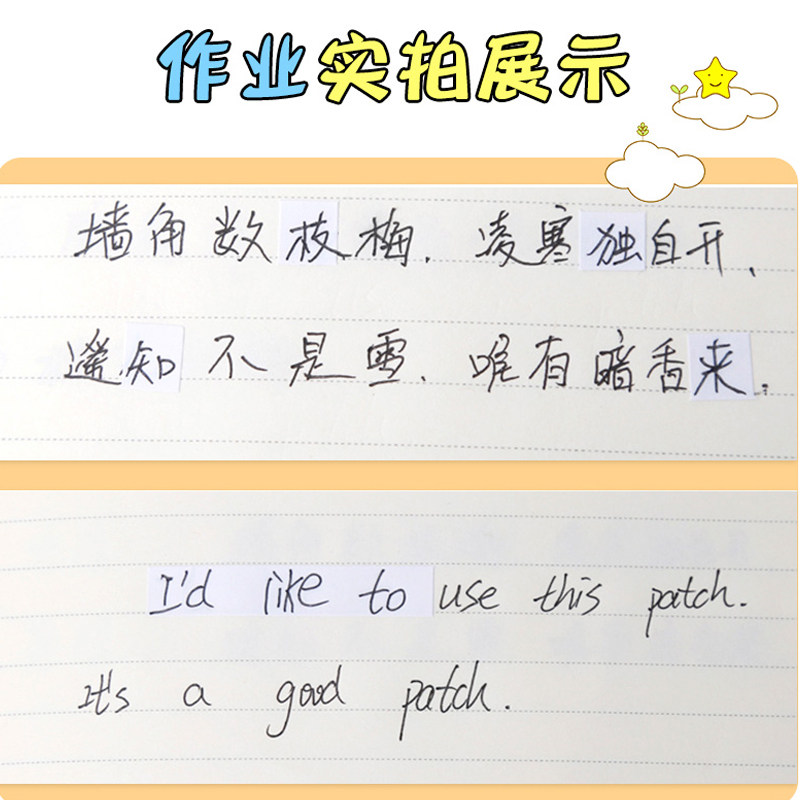 作业实拍展示
墙角数枝梅.凌寒独自开、
遥知不是雪.唯有暗香来。
I'd like to use this patch.
It's a good patch.